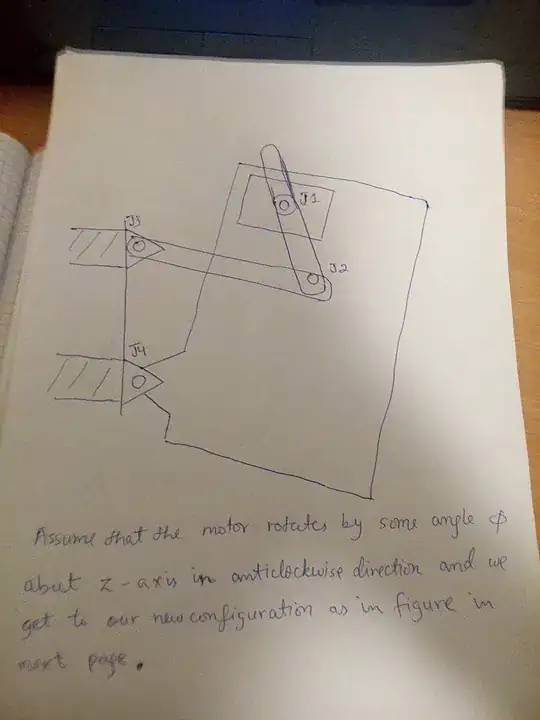 J1
J3
J2
J4
Assume that the motor rotates by some angle φ
abut z-axis in anticlockwise direction and we
get to our new configuration as in figure in
next page.